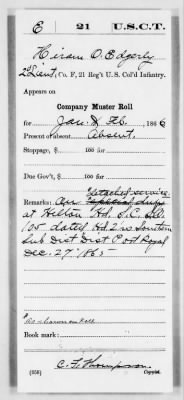 E 21 U.S.C.T.
Hiram O. Edgerly
2 Lieut, Co. F, 21 Reg't U. S. Col'd Infantry.
Appears on
Company Muster Roll
for Jan & Feb, 1866
Present or absent Absent.
Stoppage, $ 100 for
Due Gov't, $ 100 for
detached service
Remarks: On special duty
at Hilton Hd. S.C.
105 dated Hd. Qrs Southern
Sub Dist Dist Port Royal
Dec. 27 1865
Book mark:
C. F. Thompson
(358) Copyist.